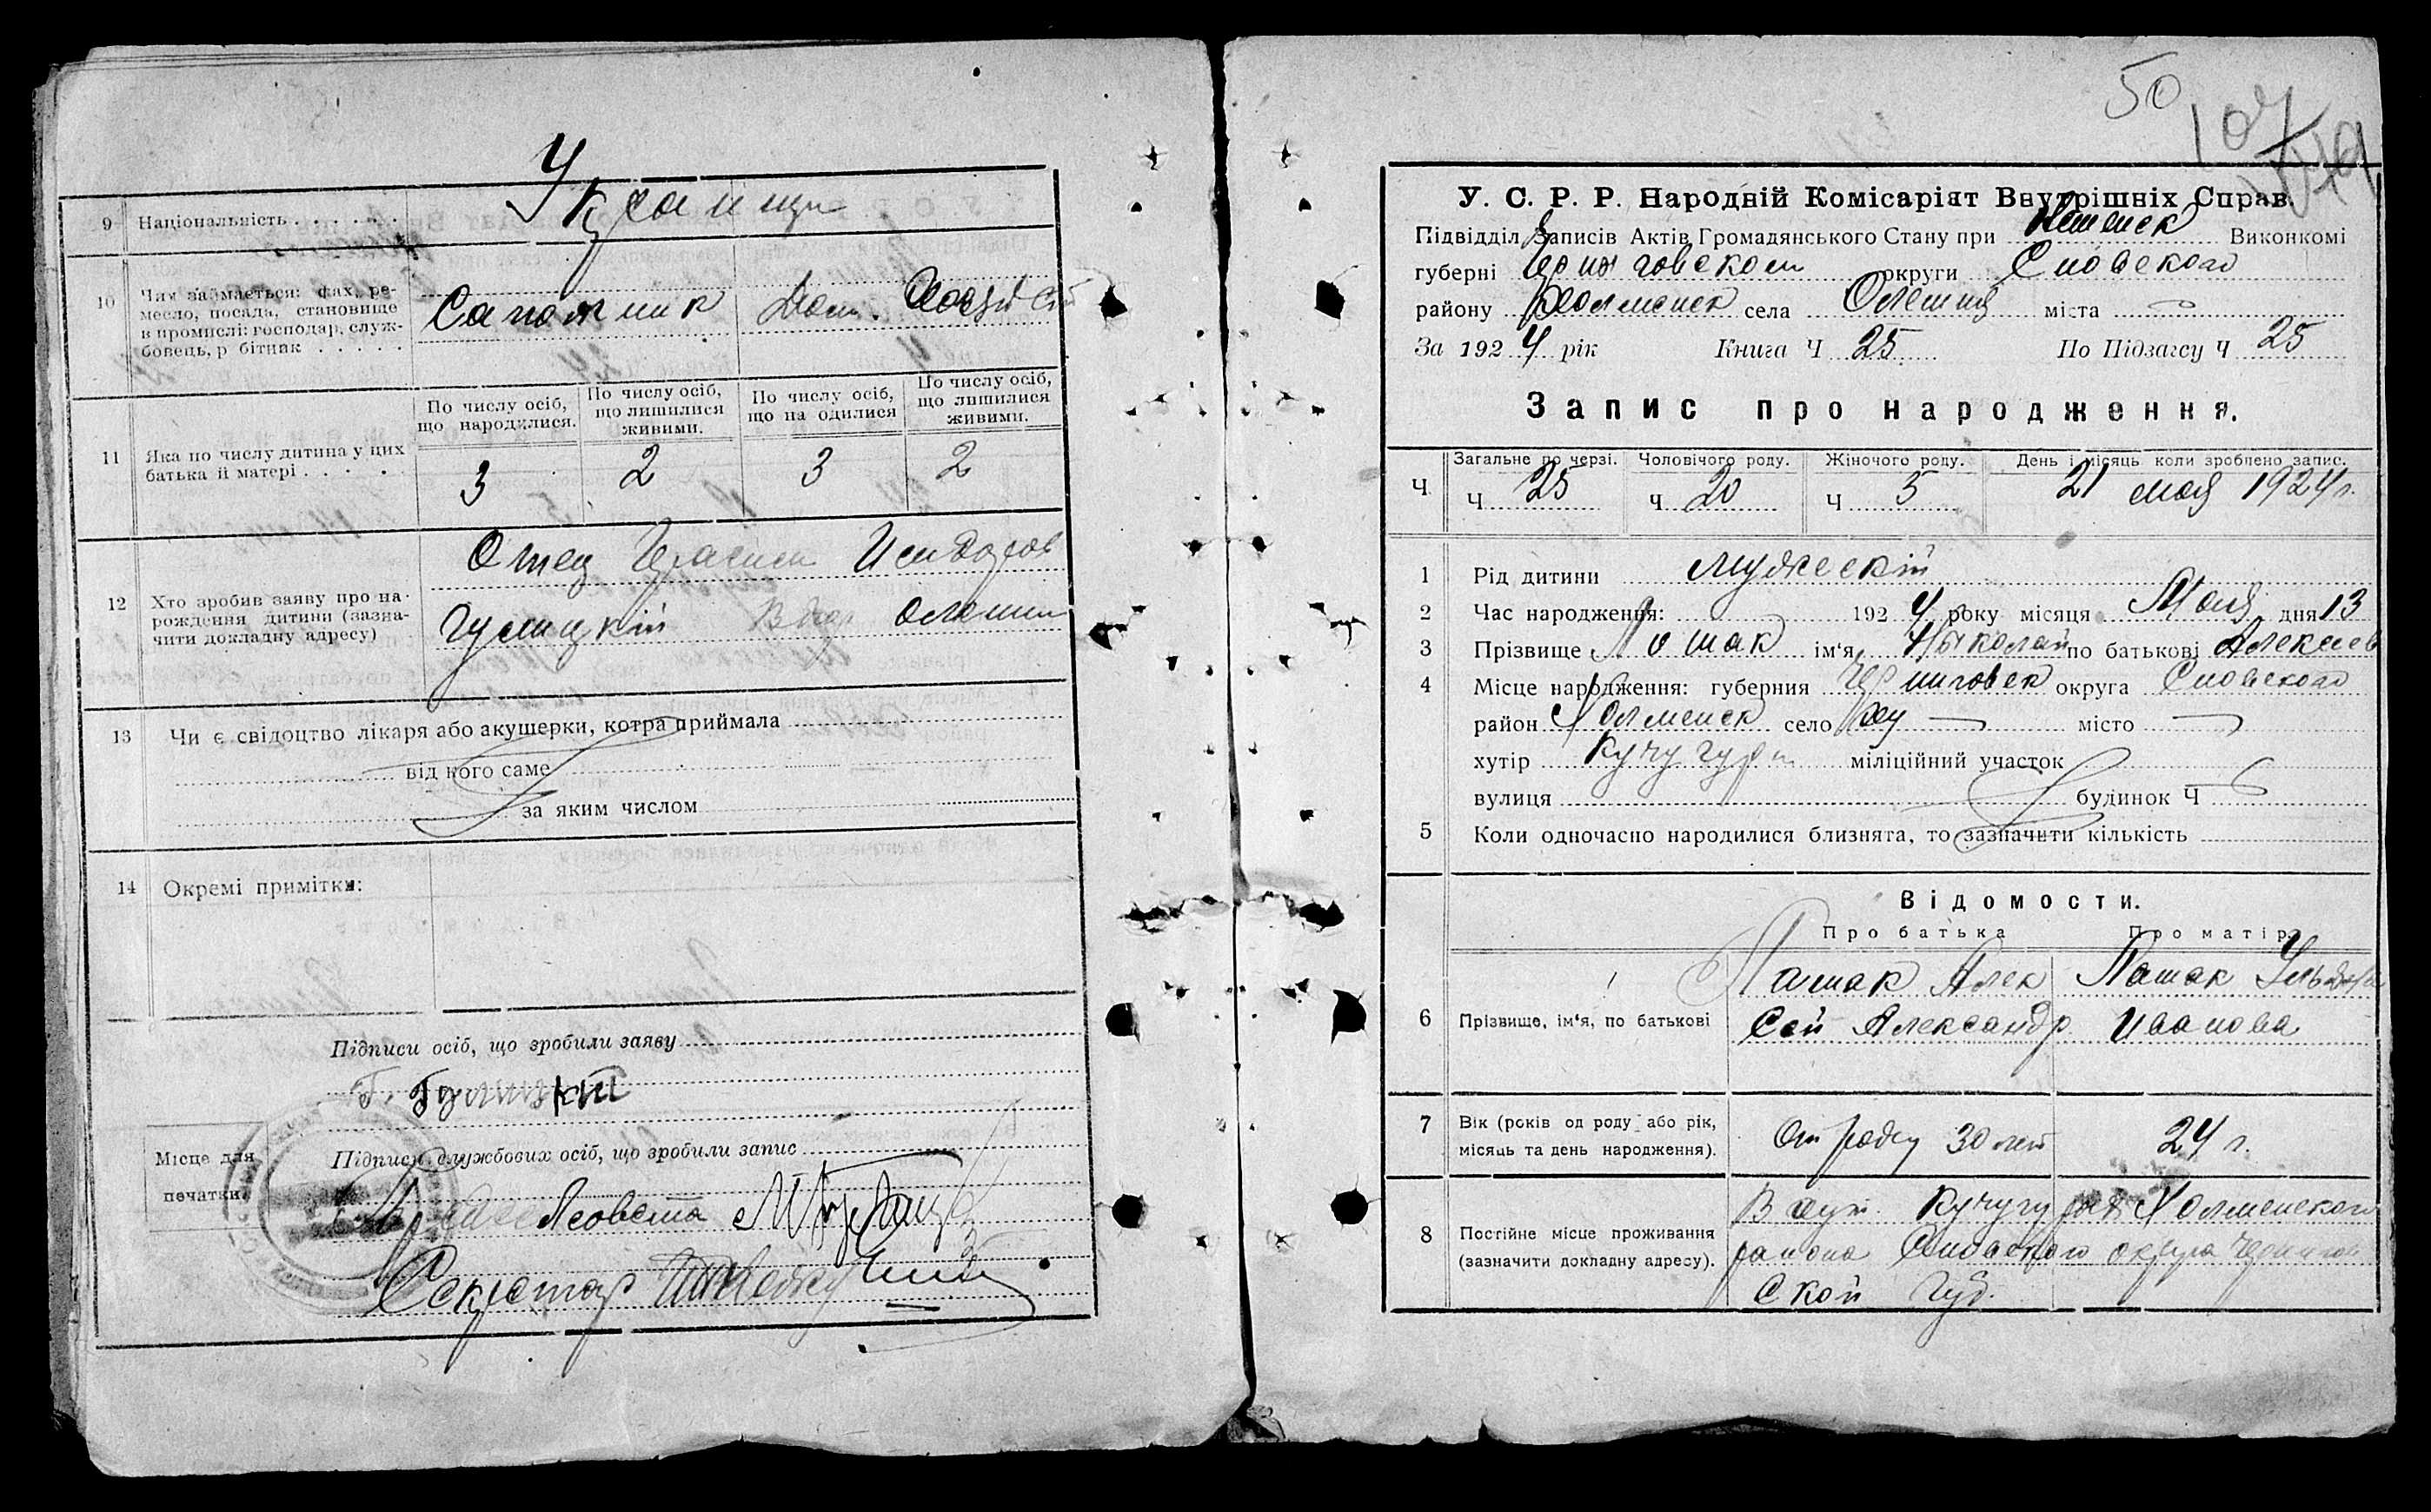 Украинци
9 Національність
10 Чим займається: фах, ре-
месло, посада, становище
в промислі: господар, служ-
бовець, р бітник
Сапожник
Дом. Хозяй
По числу осіб,
що народилися.
По числу осіб,
що лишилися
живими.
По числу осіб,
що на одилися
По числу осіб,
що лишилися
живими.
11 Яка по числу дитина у цих
батька й матері
3 2 3 2
12 Хто зробив заяву про на-
рождення дитини (зазна-
чити докладну адресу)
Отец Герасим Исидоров
Гулицкій
13 Чи є свідоцтво лікаря або акушерки, котра приймала
від кого саме
за яким числом
14 Окремі примітки:
Підписи осіб, що зробили заяву
Г. Гулицкій
Місце для
печатки.
Підписи службових осіб, що зробили запис
Секретар
50
107
У. С. Р. Р. Народній Комісаріят Внутрішніх Справ.
Підвідділ Записів Актів Громадянського Стану при Виконкомі
губерні Черниговском округи Сновского
району Холменск села Олешня міста
За 1924 рік Книга Ч 25 По Підзагсу Ч 25
Запис про народження.
Ч
Загальне по черзі. Чоловічого роду. Жіночого роду. День і місяць коли зроблено запис.
Ч 25 Ч 20 Ч 5 21 мая 1924 г.
1 Рід дитини Мужескій
2 Час народження: 1924 року місяця Мая дня 13
3 Прізвище Лошак ім'я Николай по батькові Алексеев
4 Місце народження: губерния Черниговск округа Сновского
район Холменск село місто
хутір Кучугуры міліційний участок
вулиця будинок Ч
5 Коли одночасно народилися близнята, то зазначити кількість
Відомости.
Про батька Про матір.
6 Прізвище, ім'я, по батькові
Лашак Алек
сей Александр
Лашак
Иванова
7 Вік (років од роду або рік,
місяць та день народження).
От роду 30 лет
24 г.
8 Постійне місце проживання
(зазначити докладну адресу).
В хут. Кучугурах Холменского
района Сновского округа Чернигов
ской Губ.